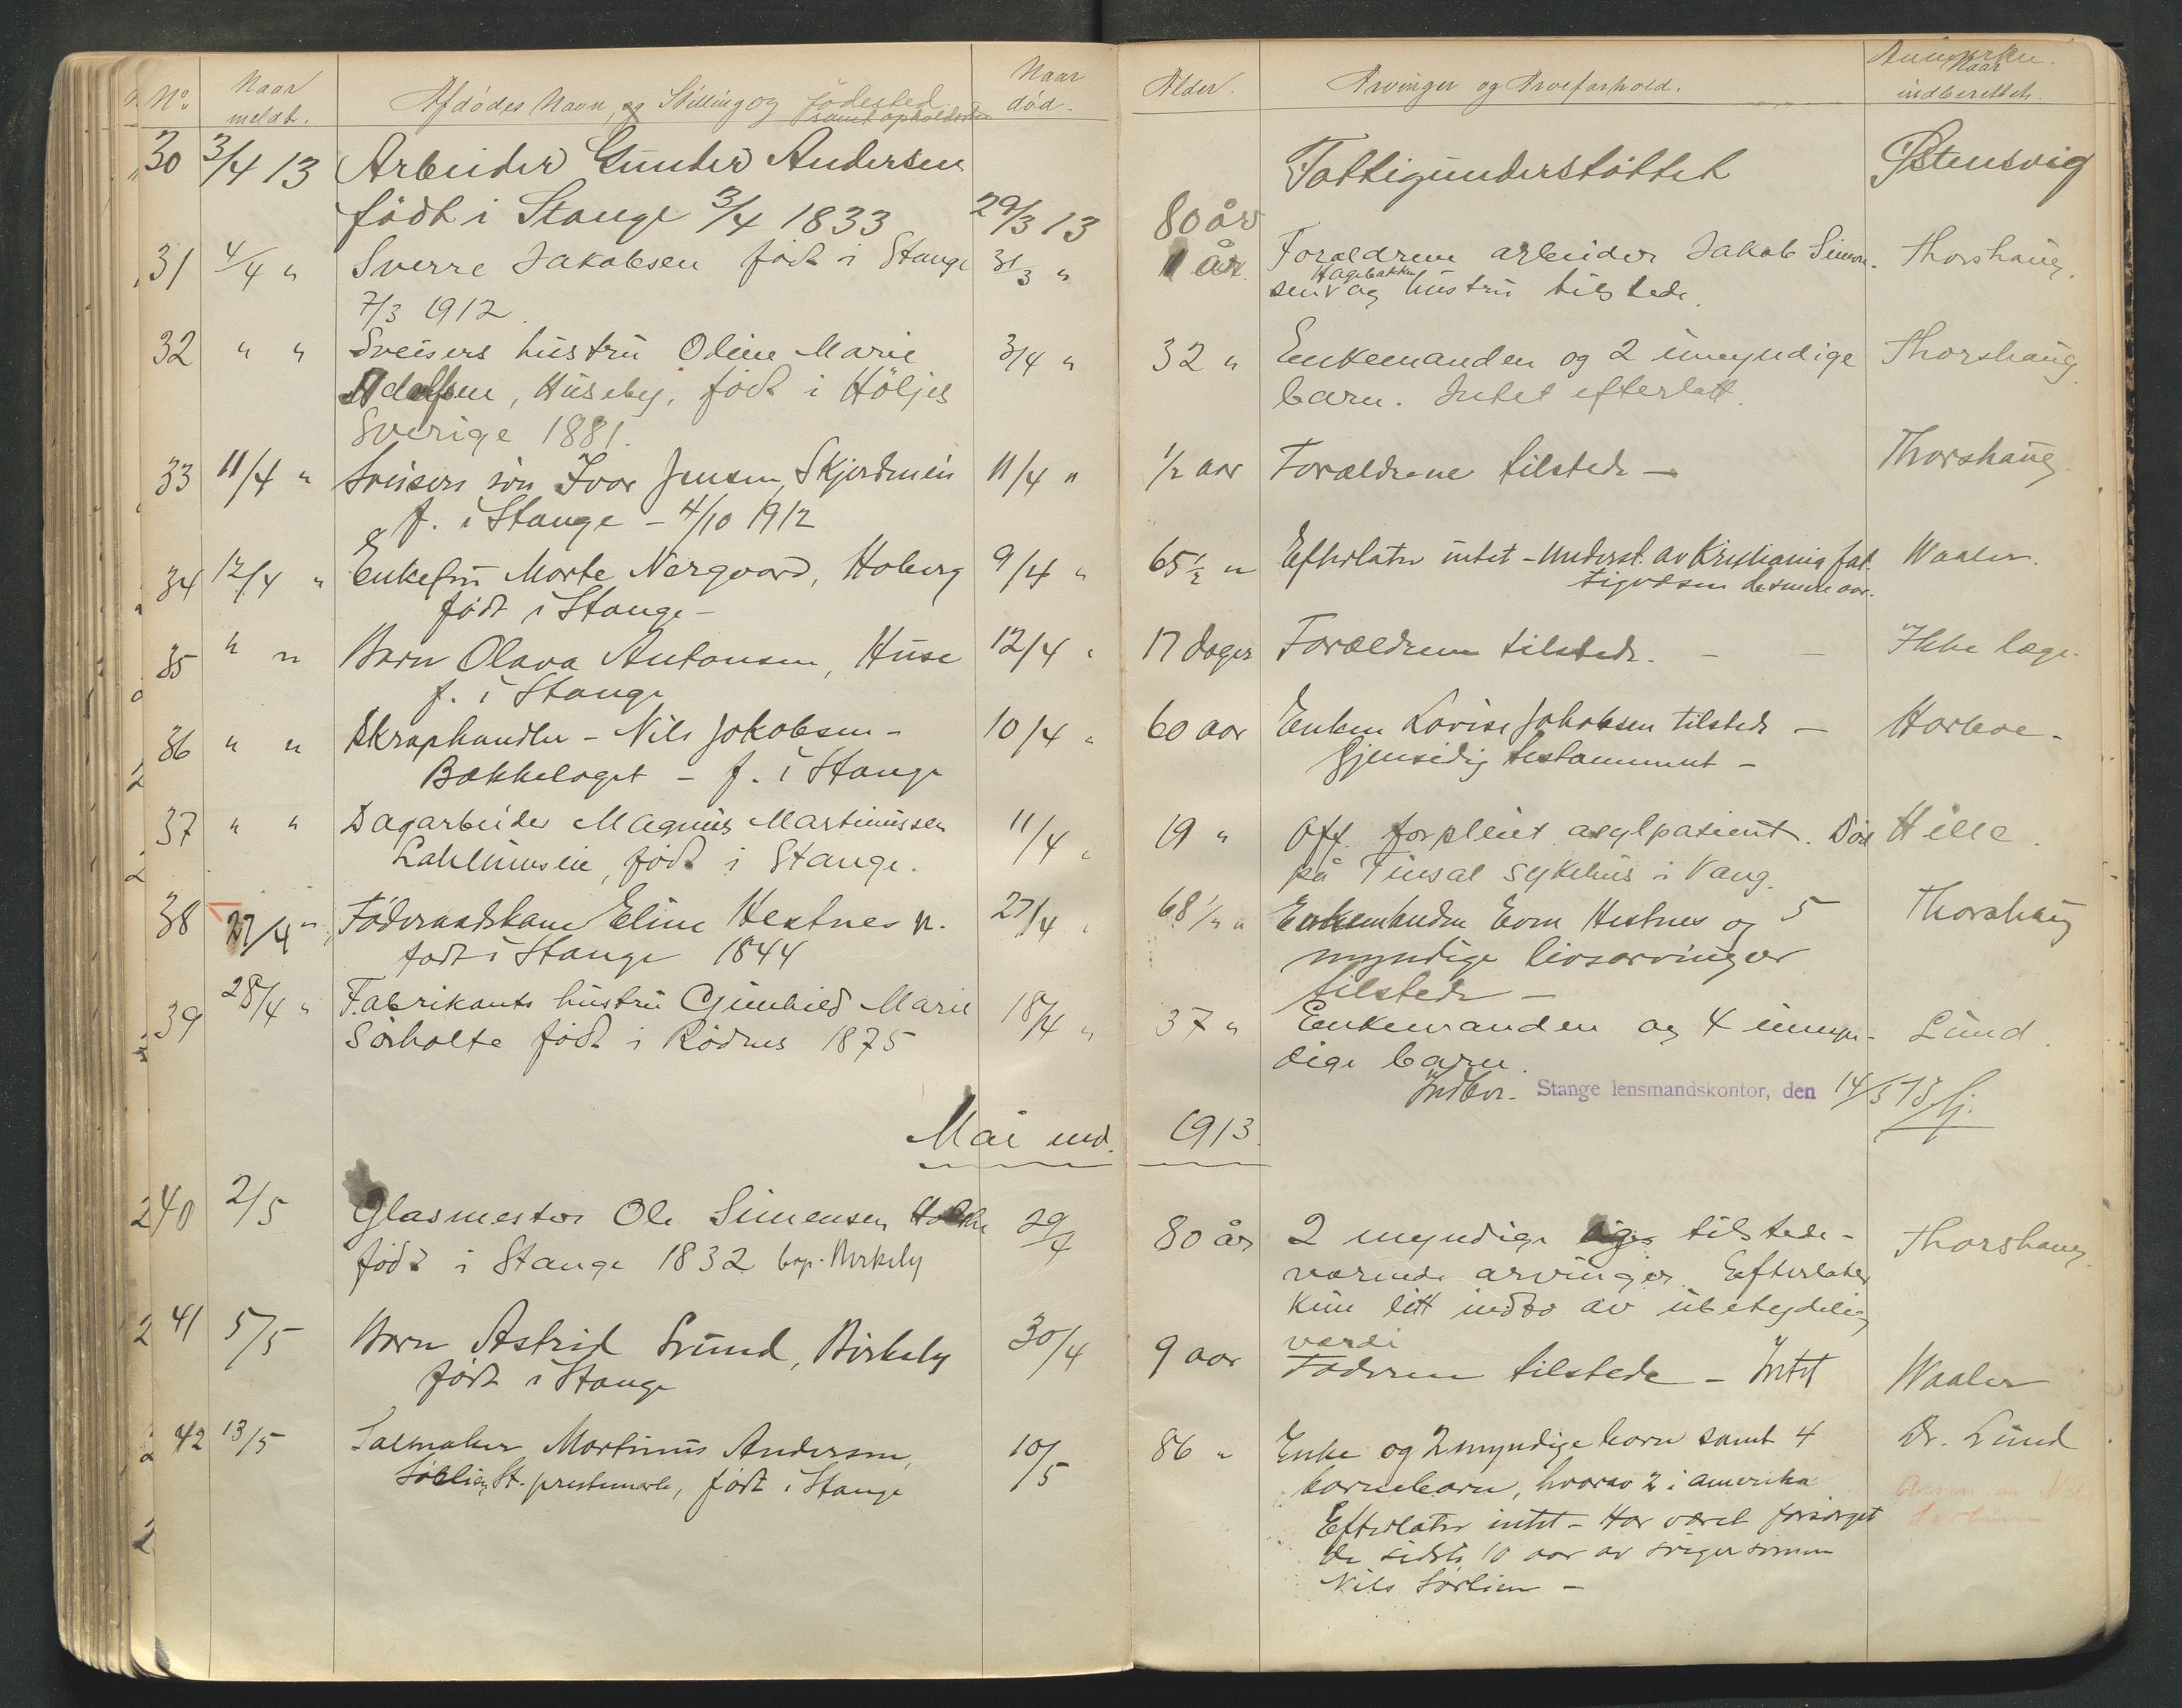 No. Naar meldt. Afdødes Navn, og Stilling og Fødested samt opholdssted Naar død. Alder. Arvinger og Arveforhold. Anmerkn. Naar indberettet.
30 3/4 13 Arbeider Gunder Andersen Fattigunderstøttet Østensvig
født i Stange 3/4 1833 29/3 13 80 år
31 4/4 " Sverre Jakobsen født i Stange 31/3 " 1 år. Forældrene arbeider Jakob Simen- Thorshaug.
7/3 1912. sen Hagebakken og hustru tilstede.
32 " " Sveisers hustru Oline Marie 3/4 " 32 " Enkemanden og 2 umyndige Thorshaug.
Adolfsen, Huseby, født i Höljes barn. Intet efterlatt.
Sverige 1881.
33 11/4 " Sveisers søn Ivar Jensen, Skjerdmein 11/4 " 1/2 aar Forældrene tilstede — Thorshaug
f. i Stange - 4/10 1912
34 12/4 " Enkefru Marte Nergaard, Hoberg 9/4 " 65 1/2 " Efterlater intet - Underst. av Kristiania fat- Waaler.
født i Stange - tigvæsen de senere aar.
35 " " Barn Olava Antonsen, Huse 12/4 " 17 dager Forældrene tilstede. — — Ikke læge.
f. i Stange
36 " " Skraphandler - Nils Jakobsen - 10/4 " 60 aar Enken Lovise Jakobsen tilstede — Harboe -
Bækkelaget - f. i Stange gjensidig testamment -
37 " " Dagarbeider Magnus Martinussen 11/4 " 19 " Off. forpleiet asylpatient. Død Hille.
født i Stange. på Finsal sykehus i Vang.
38 27/4 " Føderaadskone Eline Hestnes n. 27/4 " 68 1/2 " Enkemanden Even Hestnes og 5 Thorshaug
født i Stange 1844 myndige livsarvinger
tilstede —
39 28/4 " Fabrikants hustru Gunhild Marie 18/4 " 37 " Enkemanden og 4 umyn- Lund.
Sørholte født i Rødnes 1875 dige barn.
Indber. Stange lensmandskontor, den 14/5 13
Mai md. 1913.
40 2/5 Glasmester Ole Simensen 29/4 80 år 2 myndige tilstede- Thorshaug.
født i Stange 1832 Birkeby værende arvinger. Efterlater
kun litt indbo av ubetydelig
værdi
41 5/5 Barn Astrid Lund, Birkeby 30/4 9 aar Faderen tilstede - Intet Waaler
født i Stange
42 13/5 Salmaker Martinus Andersen, 10/5 86 " Enke og 2 myndige barn samt 4 Dr. Lund
St. prestemark, født i Stange barnebarn, hvorav 2 i Amerika
Efterlater intet - Har været forsørget
de sidste 10 aar av svigersønnen
Nils Sørlien -